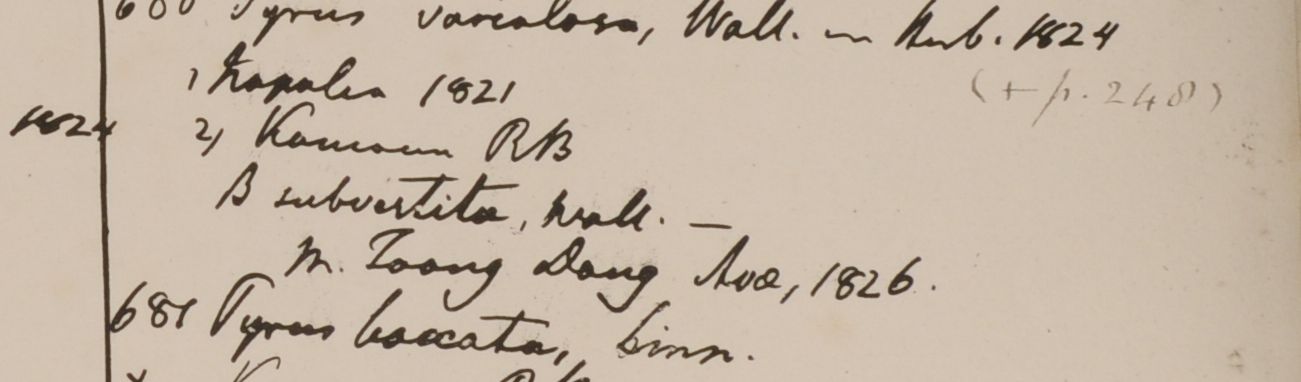 680 Pyrus variolosa, Wall. in Herb. 1824
1, Napalia 1821
(+ p. 248)
1824 2, Kamaun RB
β subvestita, Wall. —
M. Toong Dong Avæ, 1826.
681 Pyrus baccata, Linn.